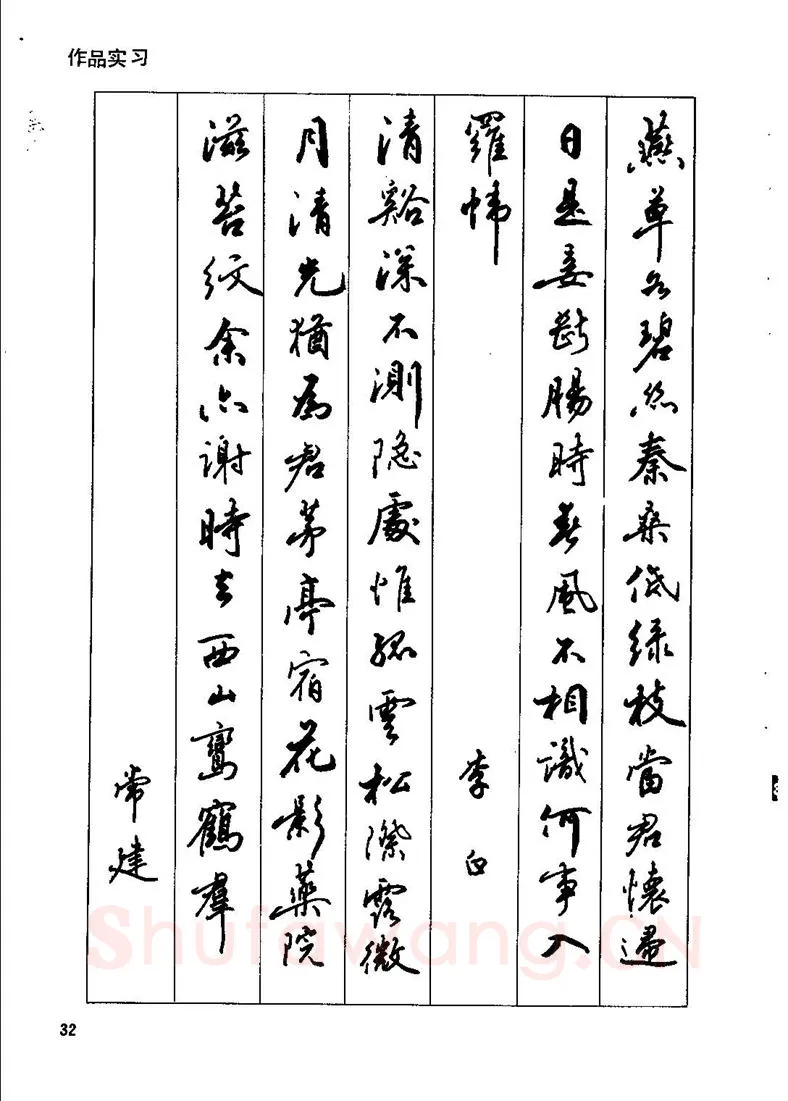 作品实习
燕草如碧丝秦桑低绿枝當君懷歸
日是妾断腸時春風不相識何事入
羅幃 李白
清谿深不測隐處惟孤雲松際露微
月清光猶為君茅亭宿花影藥院
滋苔紋余亦謝時去西山鸞鶴羣
常建
32
Shufawang.CN